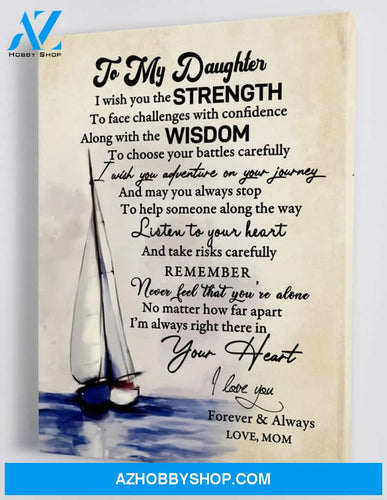 AZ
HOBBY SHOP
To My Daughter
I wish you the STRENGTH
To face challenges with confidence
Along with the WISDOM
To choose your battles carefully
I wish you adventure on your journey
And may you always stop
To help someone along the way
Listen to your heart
And take risks carefully
REMEMBER
Never feel that you're alone
No matter how far apart
I'm always right there in
Your Heart
I love you
Forever & Always
LOVE, MOM
AZHOBBYSHOP.COM